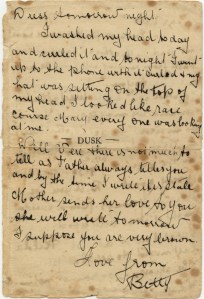 Duss tomorrow night
I washed my head to day
and curled it and to night I went
up to the phone with it curled & my
hat was sitting on the top of
my head, I looked like race
course Mary every one was looking
at me.
DUSK
Well Vere there is not much to
tell as Father always tells you
and by the time I write it's stale
Mother sends her love to you
she will write to morrow
I suppose you are very brown
Love from
Betty